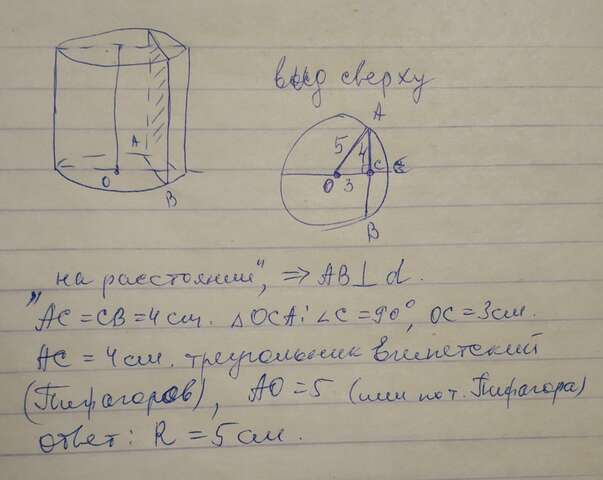 вид сверху
A
B
O
A
5
4
C
O
3
B
"на расстоянии", ⇒ AB⊥d.
AC = CB = 4 см. △OCA: ∠C = 90°, OC = 3 см.
AC = 4 см. треугольник египетский
(Пифагоров), AO = 5 (или по т. Пифагора)
ответ: R = 5 см.